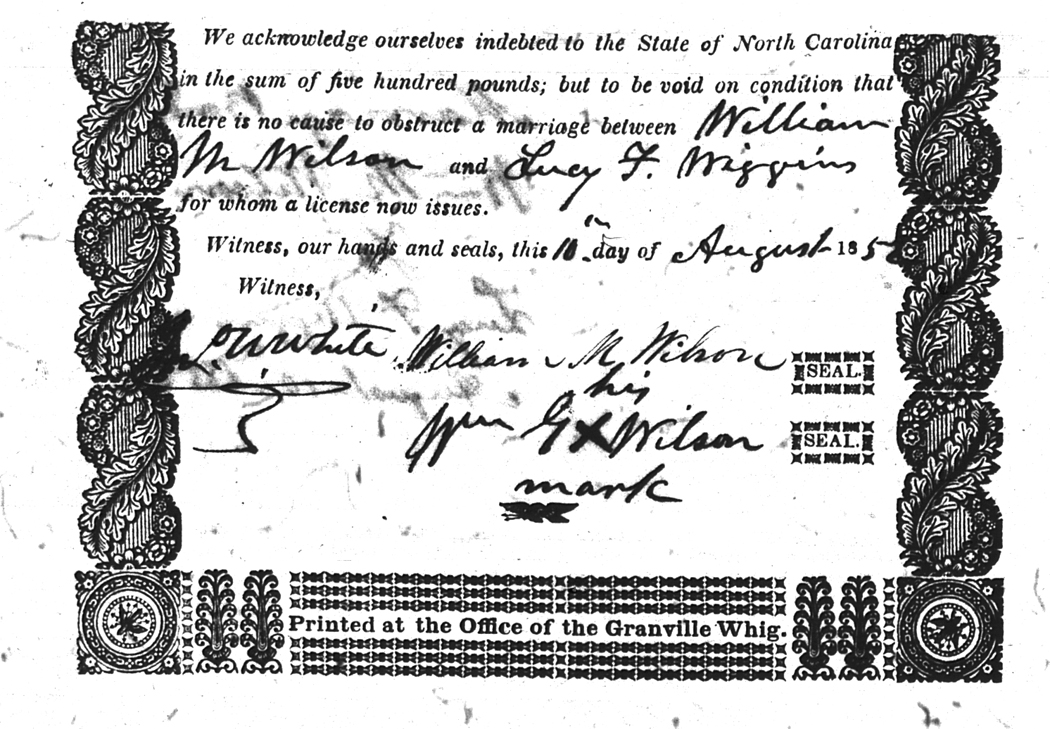 We acknowledge ourselves indebted to the State of North Carolina
in the sum of five hundred pounds; but to be void on condition that
there is no cause to obstruct a marriage between William
M Wilson and Lucy F. Wiggins
for whom a license now issues.
Witness, our hands and seals, this 10 day of August 185
Witness,
White William M Wilson SEAL.
his
Wm G X Wilson SEAL.
mark
Printed at the Office of the Granville Whig.